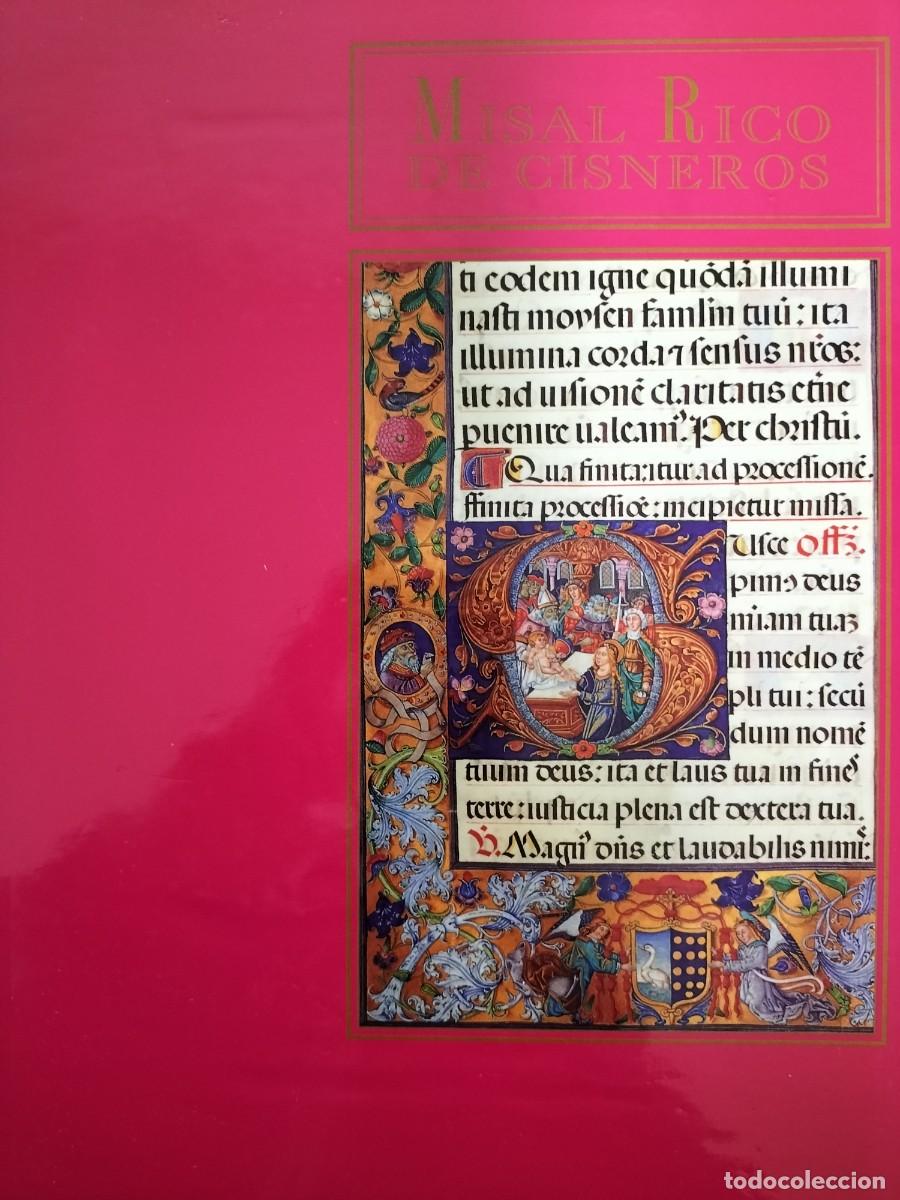 MISAL RICO
DE CISNEROS
ti eodem igne quōdā illumi
nasti moysen famlm tuū: ita
illumina corda ⁊ sensus nr̄os:
ut ad uisionē claritatis et̄ne
puenire ualeam⁹. Per christū.
Qua finita: itur ad processionē.
ffinita processiōe: incipietur missa.
Usce Off
deus
miam tuaꝫ
in medio tē
pli tui: secū
dum nomē
tuum deus: ita et laus tua in fines
terre: iusticia plena est dextera tua.
V. Magn⁹ dn̄s et laudabilis nimi
todocoleccion